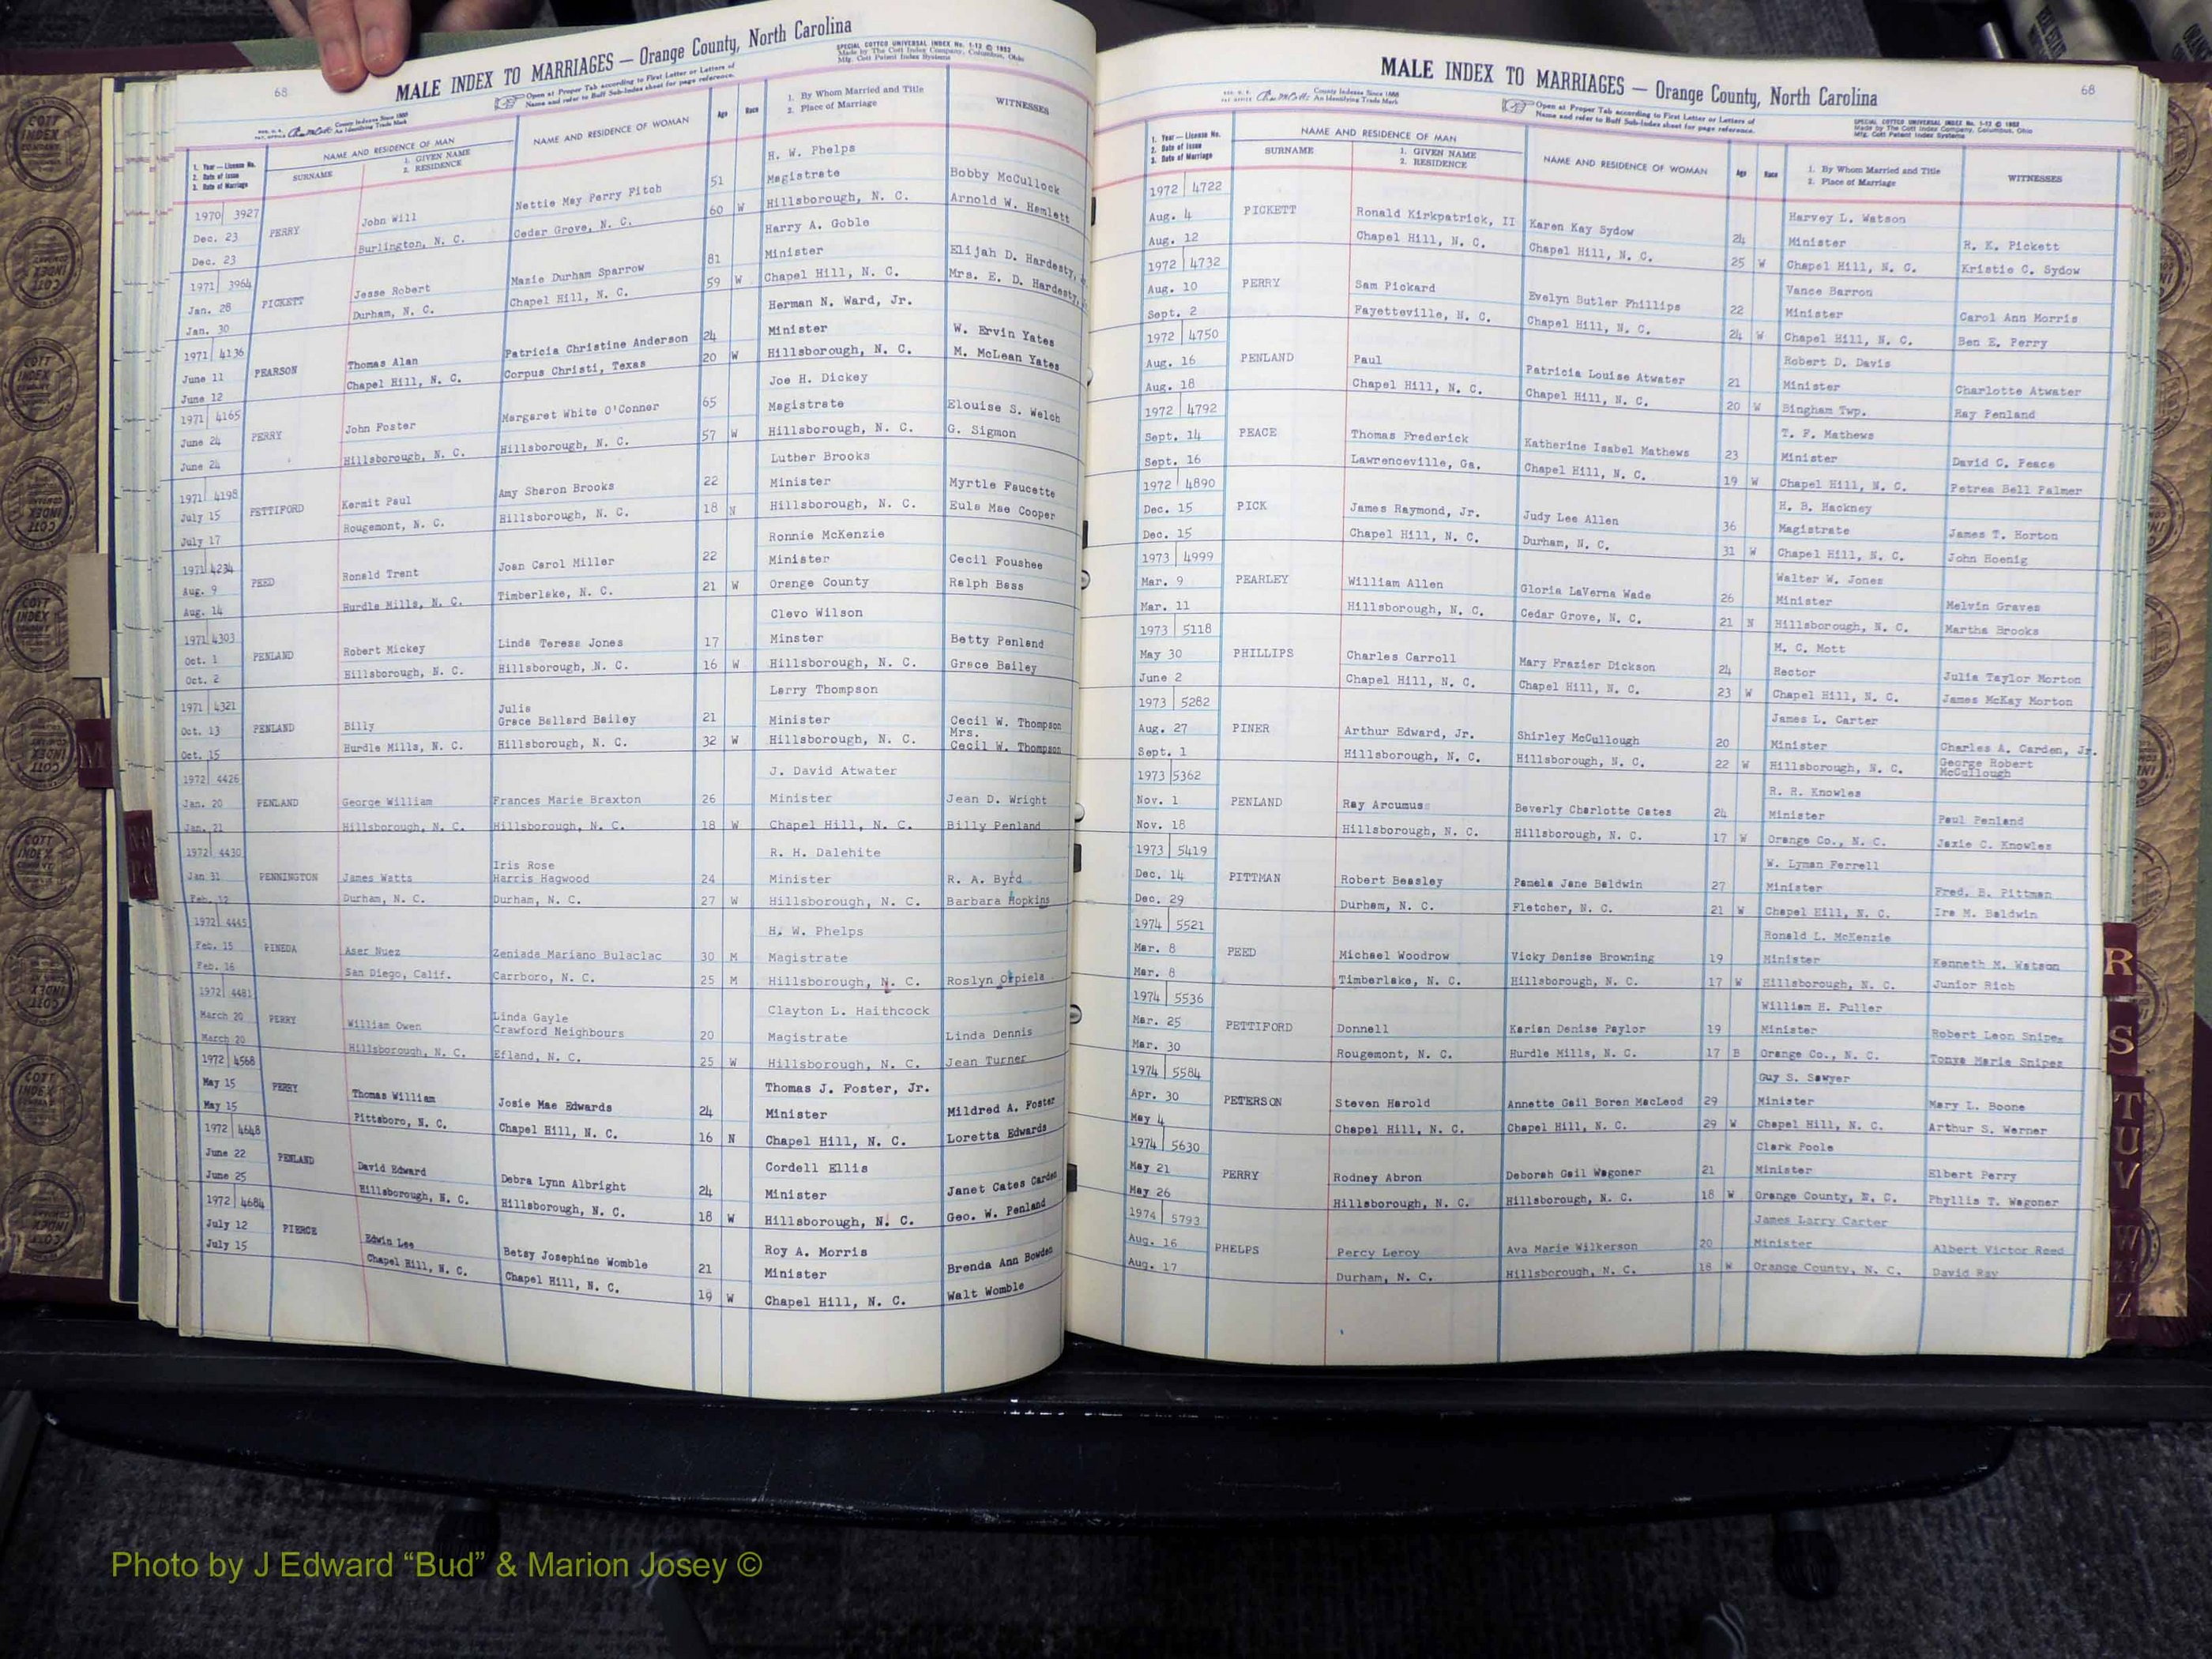 68
MALE INDEX TO MARRIAGES — Orange County, North Carolina
SPECIAL COTTCO UNIVERSAL INDEX No. 1-12 © 1952
Made by The Cott Index Company, Columbus, Ohio
Mfg. Cott Patent Index Systems
County Indexes Since 1888
An Identifying Trade Mark
Open at Proper Tab according to First Letter or Letters of
Name and refer to Buff Sub-Index sheet for page reference.
1. Year — License No.
2. Date of Issue
3. Date of Marriage
NAME AND RESIDENCE OF MAN
SURNAME
1. GIVEN NAME
2. RESIDENCE
NAME AND RESIDENCE OF WOMAN
Age
Race
1. By Whom Married and Title
2. Place of Marriage
WITNESSES
H. W. Phelps
1970 3927 Nettie May Perry Fitch 51 Magistrate Bobby McCullock
Dec. 23 PERRY John Will Cedar Grove, N. C. 60 W Hillsborough, N. C. Arnold W. Hamlett
Dec. 23 Burlington, N. C.
Harry A. Goble
1971 3964 Mazie Durham Sparrow 81 Minister Elijah D. Hardesty,
Jan. 28 PICKETT Jesse Robert Chapel Hill, N. C. 59 W Chapel Hill, N. C. Mrs. E. D. Hardesty,
Jan. 30 Durham, N. C.
Herman N. Ward, Jr.
1971 4136 Patricia Christine Anderson 24 Minister W. Ervin Yates
June 11 PEARSON Thomas Alan Corpus Christi, Texas 20 W Hillsborough, N. C. M. McLean Yates
June 12 Chapel Hill, N. C.
Joe H. Dickey
1971 4165 Margaret White O'Conner 65 Magistrate Elouise S. Welch
June 24 PERRY John Foster Hillsborough, N. C. 57 W Hillsborough, N. C. G. Sigmon
June 24 Hillsborough, N. C.
Luther Brooks
1971 4198 Amy Sharon Brooks 22 Minister Myrtle Faucette
July 15 PETTIFORD Kermit Paul Hillsborough, N. C. 18 N Hillsborough, N. C. Eula Mae Cooper
July 17 Rougemont, N. C.
Ronnie McKenzie
1971 4234 Joan Carol Miller 22 Minister Cecil Foushee
Aug. 9 PEED Ronald Trent Timberlake, N. C. 21 W Orange County Ralph Bass
Aug. 14 Hurdle Mills, N. C.
Clevo Wilson
1971 4303 Linda Teresa Jones 17 Minster Betty Penland
Oct. 1 PENLAND Robert Mickey Hillsborough, N. C. 16 W Hillsborough, N. C. Grace Bailey
Oct. 2 Hillsborough, N. C.
Larry Thompson
1971 4321 Julia
Oct. 13 PENLAND Billy Grace Ballard Bailey 21 Minister Cecil W. Thompson
Mrs.
Oct. 15 Hurdle Mills, N. C. Hillsborough, N. C. 32 W Hillsborough, N. C. Cecil W. Thompson
1972 4426 J. David Atwater
Jan. 20 PENLAND George William Frances Marie Braxton 26 Minister Jean D. Wright
Jan. 21 Hillsborough, N. C. Hillsborough, N. C. 18 W Chapel Hill, N. C. Billy Penland
1972 4430 R. H. Dalehite
Iris Rose
Jan 31 PENNINGTON James Watts Harris Hagwood 24 Minister R. A. Byrd
Feb. 12 Durham, N. C. Durham, N. C. 27 W Hillsborough, N. C. Barbara Hopkins
1972 4445 H. W. Phelps
Feb. 15 PINEDA Aser Nuez Zeniada Mariano Bulaclac 30 M Magistrate
Feb. 16 San Diego, Calif. Carrboro, N. C. 25 M Hillsborough, N. C. Roslyn Orpiela
1972 4481 Clayton L. Haithcock
March 20 PERRY William Owen Linda Gayle
Crawford Neighbours 20 Magistrate Linda Dennis
March 20 Hillsborough, N. C. Efland, N. C. 25 W Hillsborough, N. C. Jean Turner
1972 4568 Thomas J. Foster, Jr.
May 15 PERRY Thomas William Josie Mae Edwards 24 Minister Mildred A. Foster
May 15 Pittsboro, N. C. Chapel Hill, N. C. 16 N Chapel Hill, N. C. Loretta Edwards
1972 4648 Cordell Ellis
June 22 PENLAND David Edward Debra Lynn Albright 24 Minister Janet Cates Carden
June 25 Hillsborough, N. C. Hillsborough, N. C. 18 W Hillsborough, N. C. Geo. W. Penland
1972 4684 Roy A. Morris
July 12 PIERCE Edwin Lee Betsy Josephine Womble 21 Minister Brenda Ann Bowden
July 15 Chapel Hill, N. C. Chapel Hill, N. C. 19 W Chapel Hill, N. C. Walt Womble
MALE INDEX TO MARRIAGES — Orange County, North Carolina
68
County Indexes Since 1888
An Identifying Trade Mark
Open at Proper Tab according to First Letter or Letters of
Name and refer to Buff Sub-Index sheet for page reference.
SPECIAL COTTCO UNIVERSAL INDEX No. 1-12 © 1952
Made by The Cott Index Company, Columbus, Ohio
Mfg. Cott Patent Index Systems
1. Year — License No.
2. Date of Issue
3. Date of Marriage
NAME AND RESIDENCE OF MAN
SURNAME
1. GIVEN NAME
2. RESIDENCE
NAME AND RESIDENCE OF WOMAN
Age
Race
1. By Whom Married and Title
2. Place of Marriage
WITNESSES
1972 4722 Harvey L. Watson
Aug. 4 PICKETT Ronald Kirkpatrick, II Karen Kay Sydow 24 Minister R. K. Pickett
Aug. 12 Chapel Hill, N. C. Chapel Hill, N. C. 25 W Chapel Hill, N. C. Kristie C. Sydow
1972 4732 Vance Barron
Aug. 10 PERRY Sam Pickard Evelyn Butler Phillips 22 Minister Carol Ann Morris
Sept. 2 Fayetteville, N. C. Chapel Hill, N. C. 24 W Chapel Hill, N. C. Ben E. Perry
1972 4750 Robert D. Davis
Aug. 16 PENLAND Paul Patricia Louise Atwater 21 Minister Charlotte Atwater
Aug. 18 Chapel Hill, N. C. Chapel Hill, N. C. 20 W Bingham Twp. Ray Penland
1972 4792 T. F. Mathews
Sept. 14 PEACE Thomas Frederick Katherine Isabel Mathews 23 Minister David C. Peace
Sept. 16 Lawrenceville, Ga. Chapel Hill, N. C. 19 W Chapel Hill, N. C. Petrea Bell Palmer
1972 4890 H. B. Hackney
Dec. 15 PICK James Raymond, Jr. Judy Lee Allen 36 Magistrate James T. Horton
Dec. 15 Chapel Hill, N. C. Durham, N. C. 31 W Chapel Hill, N. C. John Hoenig
1973 4999 Walter W. Jones
Mar. 9 PEARLEY William Allen Gloria LaVerna Wade 26 Minister Melvin Graves
Mar. 11 Hillsborough, N. C. Cedar Grove, N. C. 21 N Hillsborough, N. C. Martha Brooks
1973 5118 M. C. Mott
May 30 PHILLIPS Charles Carroll Mary Frazier Dickson 24 Rector Julia Taylor Morton
June 2 Chapel Hill, N. C. Chapel Hill, N. C. 23 W Chapel Hill, N. C. James McKay Morton
1973 5282 James L. Carter
Aug. 27 PINER Arthur Edward, Jr. Shirley McCullough 20 Minister Charles A. Carden, Jr.
Sept. 1 Hillsborough, N. C. Hillsborough, N. C. 22 W Hillsborough, N. C. George Robert
McCullough
1973 5362 R. H. Knowles
Nov. 1 PENLAND Ray Arcumus Beverly Charlotte Cates 24 Minister Paul Penland
Nov. 18 Hillsborough, N. C. Hillsborough, N. C. 17 W Orange Co., N. C. Jaxie C. Knowles
1973 5419 W. Lyman Ferrell
Dec. 14 PITTMAN Robert Beasley Pamela Jane Baldwin 27 Minister Fred. B. Pittman
Dec. 29 Durham, N. C. Fletcher, N. C. 21 W Chapel Hill, N. C. Ira M. Baldwin
1974 5521 Ronald L. McKenzie
Mar. 8 PEED Michael Woodrow Vicky Denise Browning 19 Minister Kenneth M. Watson
Mar. 8 Timberlake, N. C. Hillsborough, N. C. 17 W Hillsborough, N. C. Junior Rich
1974 5536 William H. Fuller
Mar. 25 PETTIFORD Donnell Karian Denise Paylor 19 Minister Robert Leon Snipes
Mar. 30 Rougemont, N. C. Hurdle Mills, N. C. 17 B Orange Co., N. C. Tonya Maria Snipes
1974 5584 Guy S. Sawyer
Apr. 30 PETERSON Steven Harold Annette Gail Boren MacLeod 29 Minister Mary L. Boone
May 4 Chapel Hill, N. C. Chapel Hill, N. C. 29 W Chapel Hill, N. C. Arthur S. Werner
1974 5630 Clark Poole
May 21 PERRY Rodney Abron Deborah Gail Wagoner 21 Minister Elbert Perry
May 26 Hillsborough, N. C. Hillsborough, N. C. 18 W Orange County, N. C. Phyllis T. Wagoner
1974 5793 James Larry Carter
Aug. 16 PHELPS Percy Leroy Ava Marie Wilkerson 20 Minister Albert Victor Reed
Aug. 17 Durham, N. C. Hillsborough, N. C. 18 W Orange County, N. C. David Ray
M
R
S
T
U
V
W
Z
COTT
INDEX
COMPANY
Photo by J Edward “Bud” & Marion Josey ©